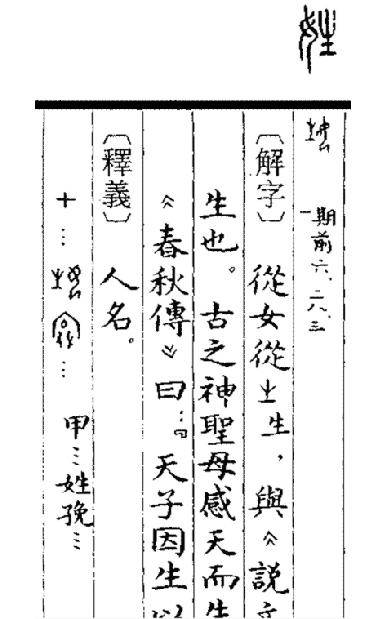 姓
一期 前六、二八、三
〔解字〕 從女從生,與《說文
生也。古之神聖母感天而生
《春秋傳》曰:『天子因生以
〔釋義〕 人名。
十…
甲…姓㝃…